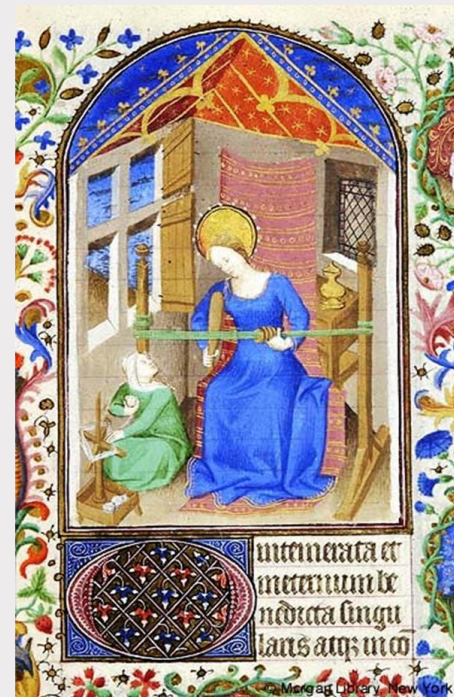 O intemerata et
ineternum be
nedicta singu
laris atqꝫ incō
© Morgan Library, New York